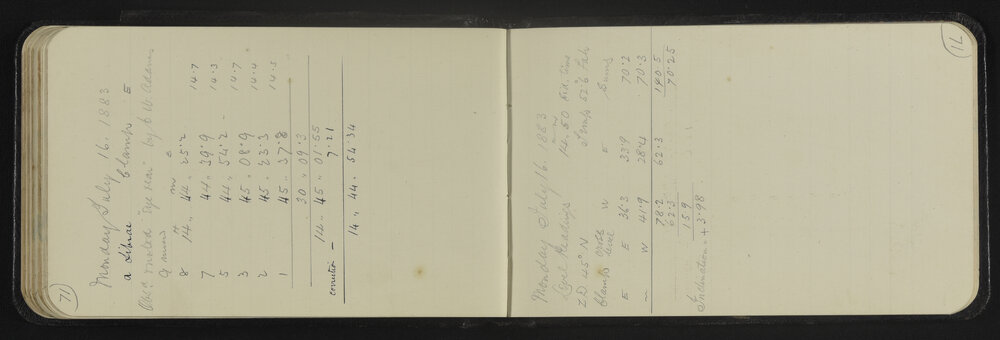 71
Monday July 16. 1883
α Librae Clamp E
Obsd. noted "Eye & ear" by C W Adams
H m s
8 14 .. 44 .. 25.2 14.7
7 44 .. 39.9 14.3
5 44 .. 54.2 - 14.7
3 45 .. 08.9 14.4
2 45 .. 23.3 14.5
1 45 .. 37.8
30 .. 09.3
14 .. 45 .. 01.55
correction - 7.21
14 .. 44 .. 54.34
71
Monday July 16. 1883
Level Readings 14.50 Sid. time
Z D 45° N Temp 52°6 Fah
Clamp cross level W E Sums
E E 36.3 33.9 70.2
" W 41.9 28.4 70.3
78.2 62.3 140.5
62.3 70.25
15.9
Inclination = + 3.98